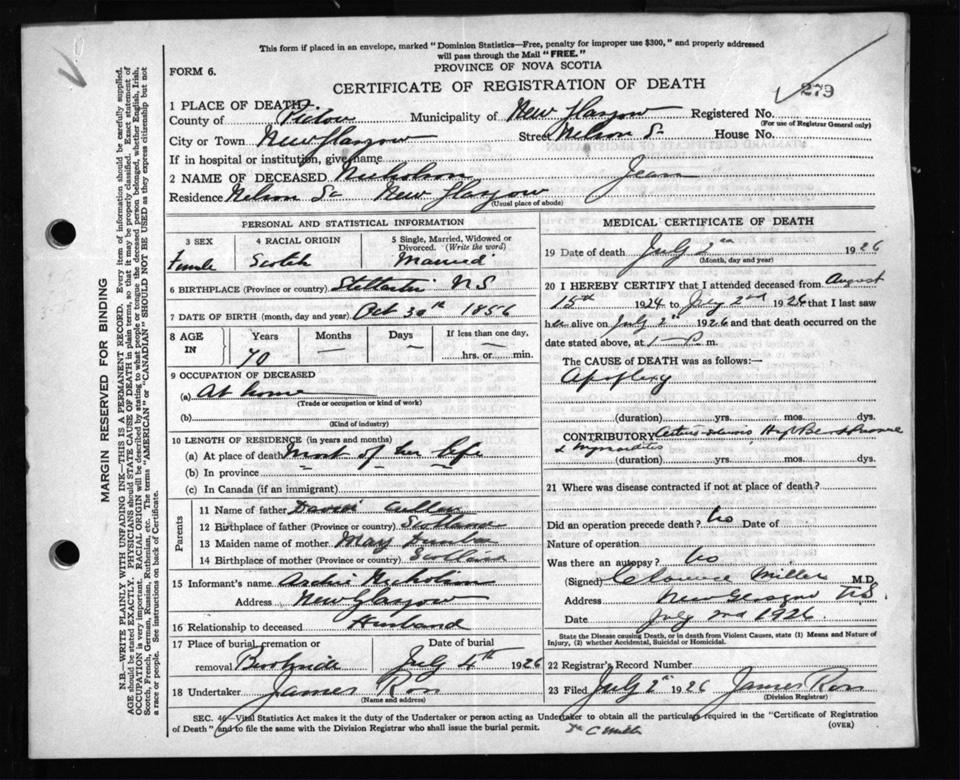 This form if placed in an envelope, marked "Dominion Statistics—Free, penalty for improper use $300," and properly addressed
will pass through the Mail "FREE."
FORM 6.
PROVINCE OF NOVA SCOTIA
CERTIFICATE OF REGISTRATION OF DEATH
279
1 PLACE OF DEATH
County of Pictou Municipality of New Glasgow Registered No.
(For use of Registrar General only)
City or Town New Glasgow Street Nelson St House No.
If in hospital or institution, give name
2 NAME OF DECEASED Nicholson Jean
Residence Nelson St New Glasgow
(Usual place of abode)
PERSONAL AND STATISTICAL INFORMATION
3 SEX 4 RACIAL ORIGIN 5 Single, Married, Widowed or
Divorced. (Write the word)
Female Scotch Married
6 BIRTHPLACE (Province or country) Stellarton N S
7 DATE OF BIRTH (month, day and year) Oct 30th 1856
8 AGE IN Years Months Days If less than one day,
70 hrs. or min.
9 OCCUPATION OF DECEASED
(a) At home
(Trade or occupation or kind of work)
(b)
(Kind of industry)
10 LENGTH OF RESIDENCE (in years and months)
(a) At place of death most of her life
(b) In province
(c) In Canada (if an immigrant)
Parents
11 Name of father David
12 Birthplace of father (Province or country) Scotland
13 Maiden name of mother May
14 Birthplace of mother (Province or country) Scotland
15 Informant's name Archie Nicholson
Address New Glasgow
16 Relationship to deceased Husband
17 Place of burial, cremation or Date of burial
removal Brookside July 4th 1926
18 Undertaker James Ross
(Name and address)
MEDICAL CERTIFICATE OF DEATH
19 Date of death July 2nd 1926
(Month, day and year)
20 I HEREBY CERTIFY that I attended deceased from August
15th 1924 to July 2nd 1926 that I last saw
her alive on July 2nd 1926 and that death occurred on the
date stated above, at 1 P m.
The CAUSE of DEATH was as follows:
Apoplexy
(duration) yrs. mos. dys.
CONTRIBUTORY High Blood Pressure
& Myocarditis
(duration) yrs. mos. dys.
21 Where was disease contracted if not at place of death?
Did an operation precede death? No Date of
Nature of operation
Was there an autopsy? No
(Signed) Clarence Miller M.D.
Address New Glasgow N.S
Date July 2nd 1926
State the Disease causing Death, or in death from Violent Causes, state (1) Means and Nature
of Injury, (2) whether Accidental, Suicidal or Homicidal.
22 Registrar's Record Number
23 Filed July 2nd 1926 James Ross
(Division Registrar)
SEC. 46—Vital Statistics Act makes it the duty of the Undertaker or person acting as Undertaker to obtain all the particulars required in the "Certificate of Registration
of Death" and to file the same with the Division Registrar who shall issue the burial permit.
(OVER)
Dr C Miller
MARGIN RESERVED FOR BINDING
N.B.—WRITE PLAINLY WITH UNFADING INK—THIS IS A PERMANENT RECORD. Every item of information should be carefully supplied.
AGE should be stated EXACTLY. PHYSICIANS should STATE CAUSE OF DEATH in plain terms, so that it may be properly classified. Exact statement of
OCCUPATION is very important. RACIAL ORIGIN will be described by stating to what people or tongue the deceased person belonged, whether English, Irish,
Scotch, French, German, Russian, Ruthenian, etc. The terms "AMERICAN" or "CANADIAN" SHOULD NOT BE USED as they express citizenship but not
a race or people. See instructions on back of Certificate.